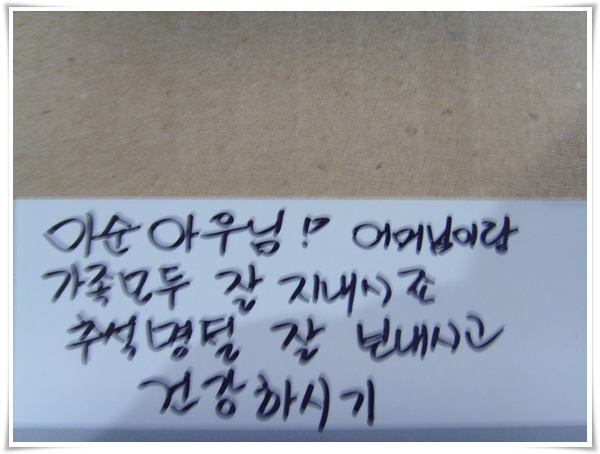 아순 아우님!° 어머님이랑
가족모두 잘 지내시죠
추석명절 잘 보내시고
건강하시기